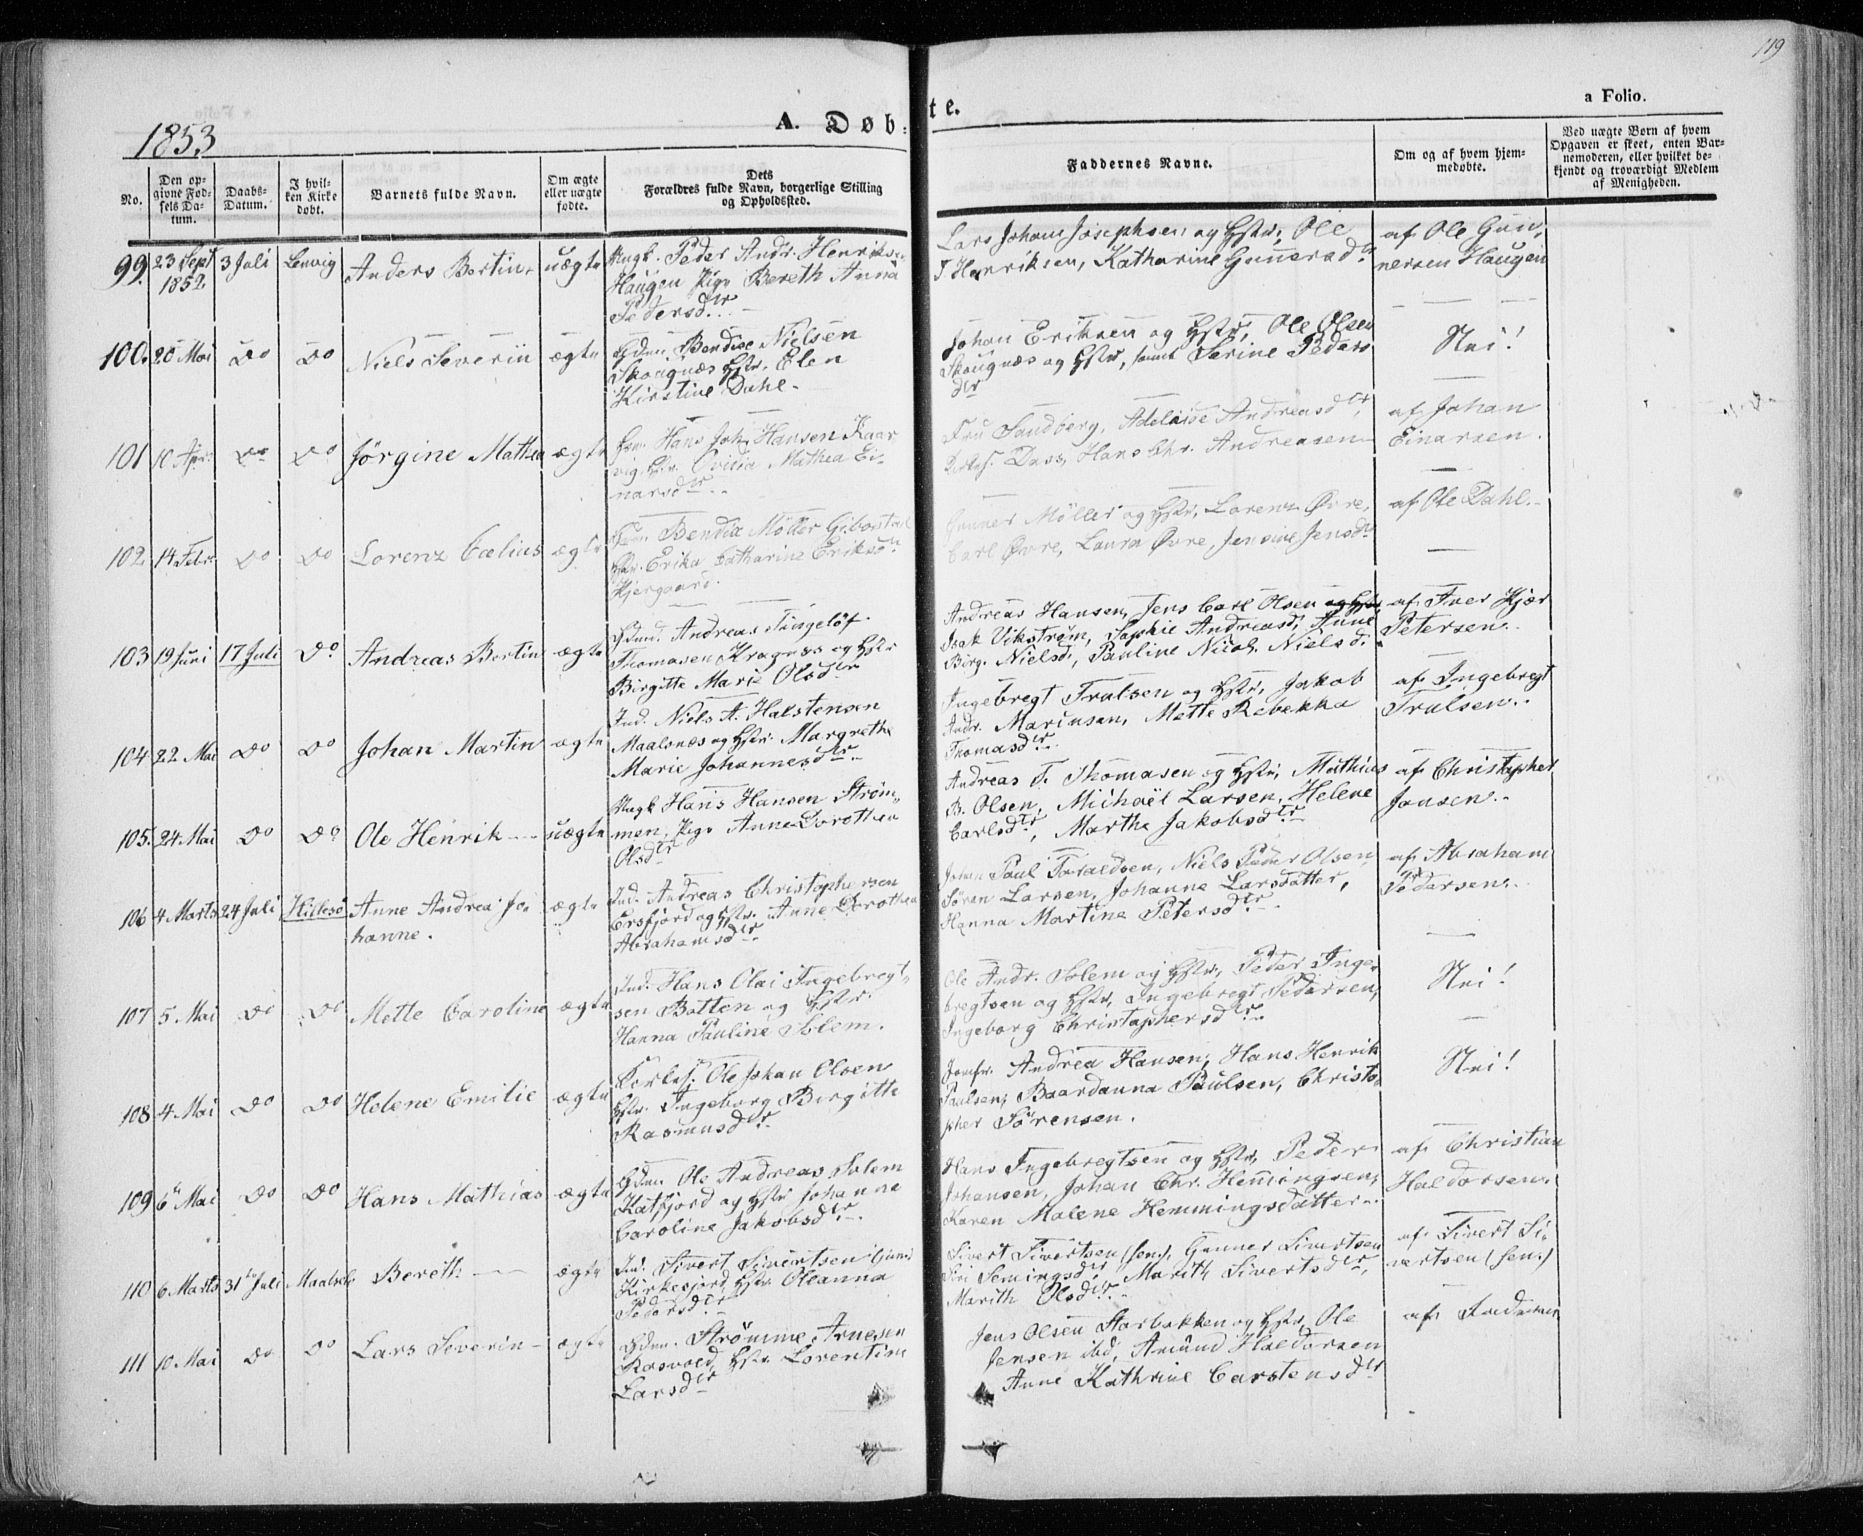 119
a Folio.
A. Døbte.
1853
No.
Den opgivne Fødsels Datum.
Daabs-Datum.
I hvilken Kirke døbt.
Barnets fulde Navn.
Om ægte eller uægte fødte.
Dets Forældres fulde Navn, borgerlige Stilling og Opholdssted.
Faddernes Navne.
Om og af hvem hjemmedøbte.
Ved uægte Børn af hvem Opgaven er skeet, enten Barnemoderen, eller hvilket bekjendt og troværdigt Medlem af Menigheden.
99. 23 Sept 1852 3 Juli Lenvig Anders Bertin uægte
Ungk. Peder Andr. Henriks.
Haugen Pige Bereth Anna
Pedersdr.
Lars Johan Josephsen og Hstr, Ole
T Henriksen, Katharine Gunersdr
af Ole Gun-
nersen Haugen
100. 20 Mai Do Do Niels Severin ægte
Gdm. Bendix Nielsen
Skougnæs Hstr. Elen
Kirstine Dahl.
Johan Eriksen og Hstr, Ole Olsen
Skougnæs og Hstr, samt Serine Peders
dr
Nei!
101 10 Apr. Do Do Jørgine Mathea ægte
Hans Joh. Hansen Kaar
vig Mathea Ei-
narsdr.
Fru Sandberg, Adelaise Andreasdr,
Dass, Hans Chr. Andreasen
af Johan
Einarsen.
102. 14 Febr. Do Do Lorenz Cælius ægte
Bendix Møller Gibostad
Erika Catharine Eriksdr
Kjergaard.
Gunner Møller og Hstr, Lorenz Øvre,
Carl Øvre, Laura Øvre, Jensine Jensdr
af Ole Dahl.
103 19 Juni 17 Juli Do Andreas Bertin ægte
Andreas Tingelöf
Thomasen Kragnæs og Hstr
Birgitte Marie Olsdr
Andreas Hansen, Jens Carl Olsen og Hstr,
Isak Vikstrøm, Sophie Andreasd, Anne
Birg. Nielsd, Pauline Nicol. Nielsd.
af Iver Kjær
Petersen.
104 22 Mai Do Do Johan Martin ægte
Ind. Niels A. Halstensen
Maalsnæs og Hstr. Margrethe
Marie Johannesdr.
Ingebregt Trulsen og Hstr, Jakob
Andr. Marinsen, Mette Rebekka
Thomasdr.
af Ingebregt
Trulsen.
105. 24 Mai Do Do Ole Henrik uægte
Ungk Hans Hansen Strøm-
men, Pige Anne Dorothea
Olsdr
Andreas T. Thomasen og Hstr, Mathias
B. Olsen, Michaël Larsen, Helene
Carlsdr, Marthe Jakobsdr
af Christopher
Jensen.
106 4 Marts 24 Juli Hillesö Anne Andrea Jo-
hanne. ægte
Ind. Andreas Christophersen
Ersfjord og Hstr. Anne Dorothea
Abrahamsdr.
Johan Paul Toraldsen, Niels Peder Olsen
Søren Larsen, Johanna Larsdatter,
Hanna Martine Petersdr.
af Abraham
Pedersen.
107 5 Mai Do Do Mette Caroline ægte
Ind. Hans Olai Ingebregt-
sen Botten og Hstr.
Hanna Pauline Solem.
Ole Andr. Solem og Hstr, Peder Inge-
bregtsen og Hstr, Ingebregt Pedersen,
Ingeborg Christophersdr.
Nei!
108 4 Mai Do Do Helene Emilie ægte
Ole Johan Olsen
Hstr. Ingeborg Birgitte
Rasmusdr
Jomfr. Andrea Hansen, Hans Henrik
Paulsen, Baardanna Paulsen, Christo-
pher Sörensen.
Nei!
109 6 Mai Do Do Hans Mathias ægte
Gdm. Ole Andreas Solem
Katfjord og Hstr Johanne
Caroline Jakobsdr.
Hans Ingebregtsen og Hstr, Peder
Johansen, Johan Chr. Hemingsen,
Karen Malene Hemmingsdatter.
af Christian
Haldorsen.
110 6 Marts 31te Juli Maalselv Bereth ægte
Ind. Sivert Sivertsen (jun.)
Kirkesjord, Hstr Oleanna
Pedersdr
Sivert Sivertsen (sen.), Gunner Sivertsen
Siri Semingsdr, Marith Sivertsdr,
Marith Olsdr.
af Sivert Si-
vertsen (sen.)
111 10 Mai Do Do Lars Severin ægte
Gdm. Strømme Arnesen
Rosvold, Hstr Lorentine
Larsdr
Jens Olsen Storbakken og Hstr, Ole
Jensen ibd, Amünd Haldorsen
Anne Kathrine Carstensdr
af Faderen